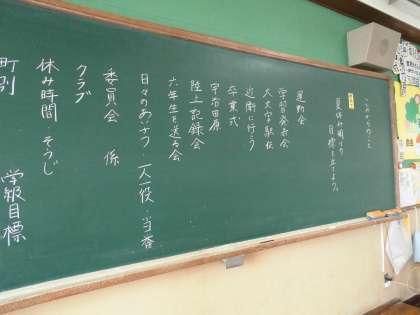 これからのこと
夏休み明けの
目標を立てよう。
運動会
学習発表会
大文字駅伝
近衛に行こう
卒業式
宇治田原
陸上記録会
六年生を送る会
日々のあいさつ・一人一役・当番
委員会 係
クラブ
休み時間・そうじ
町別 学級目標